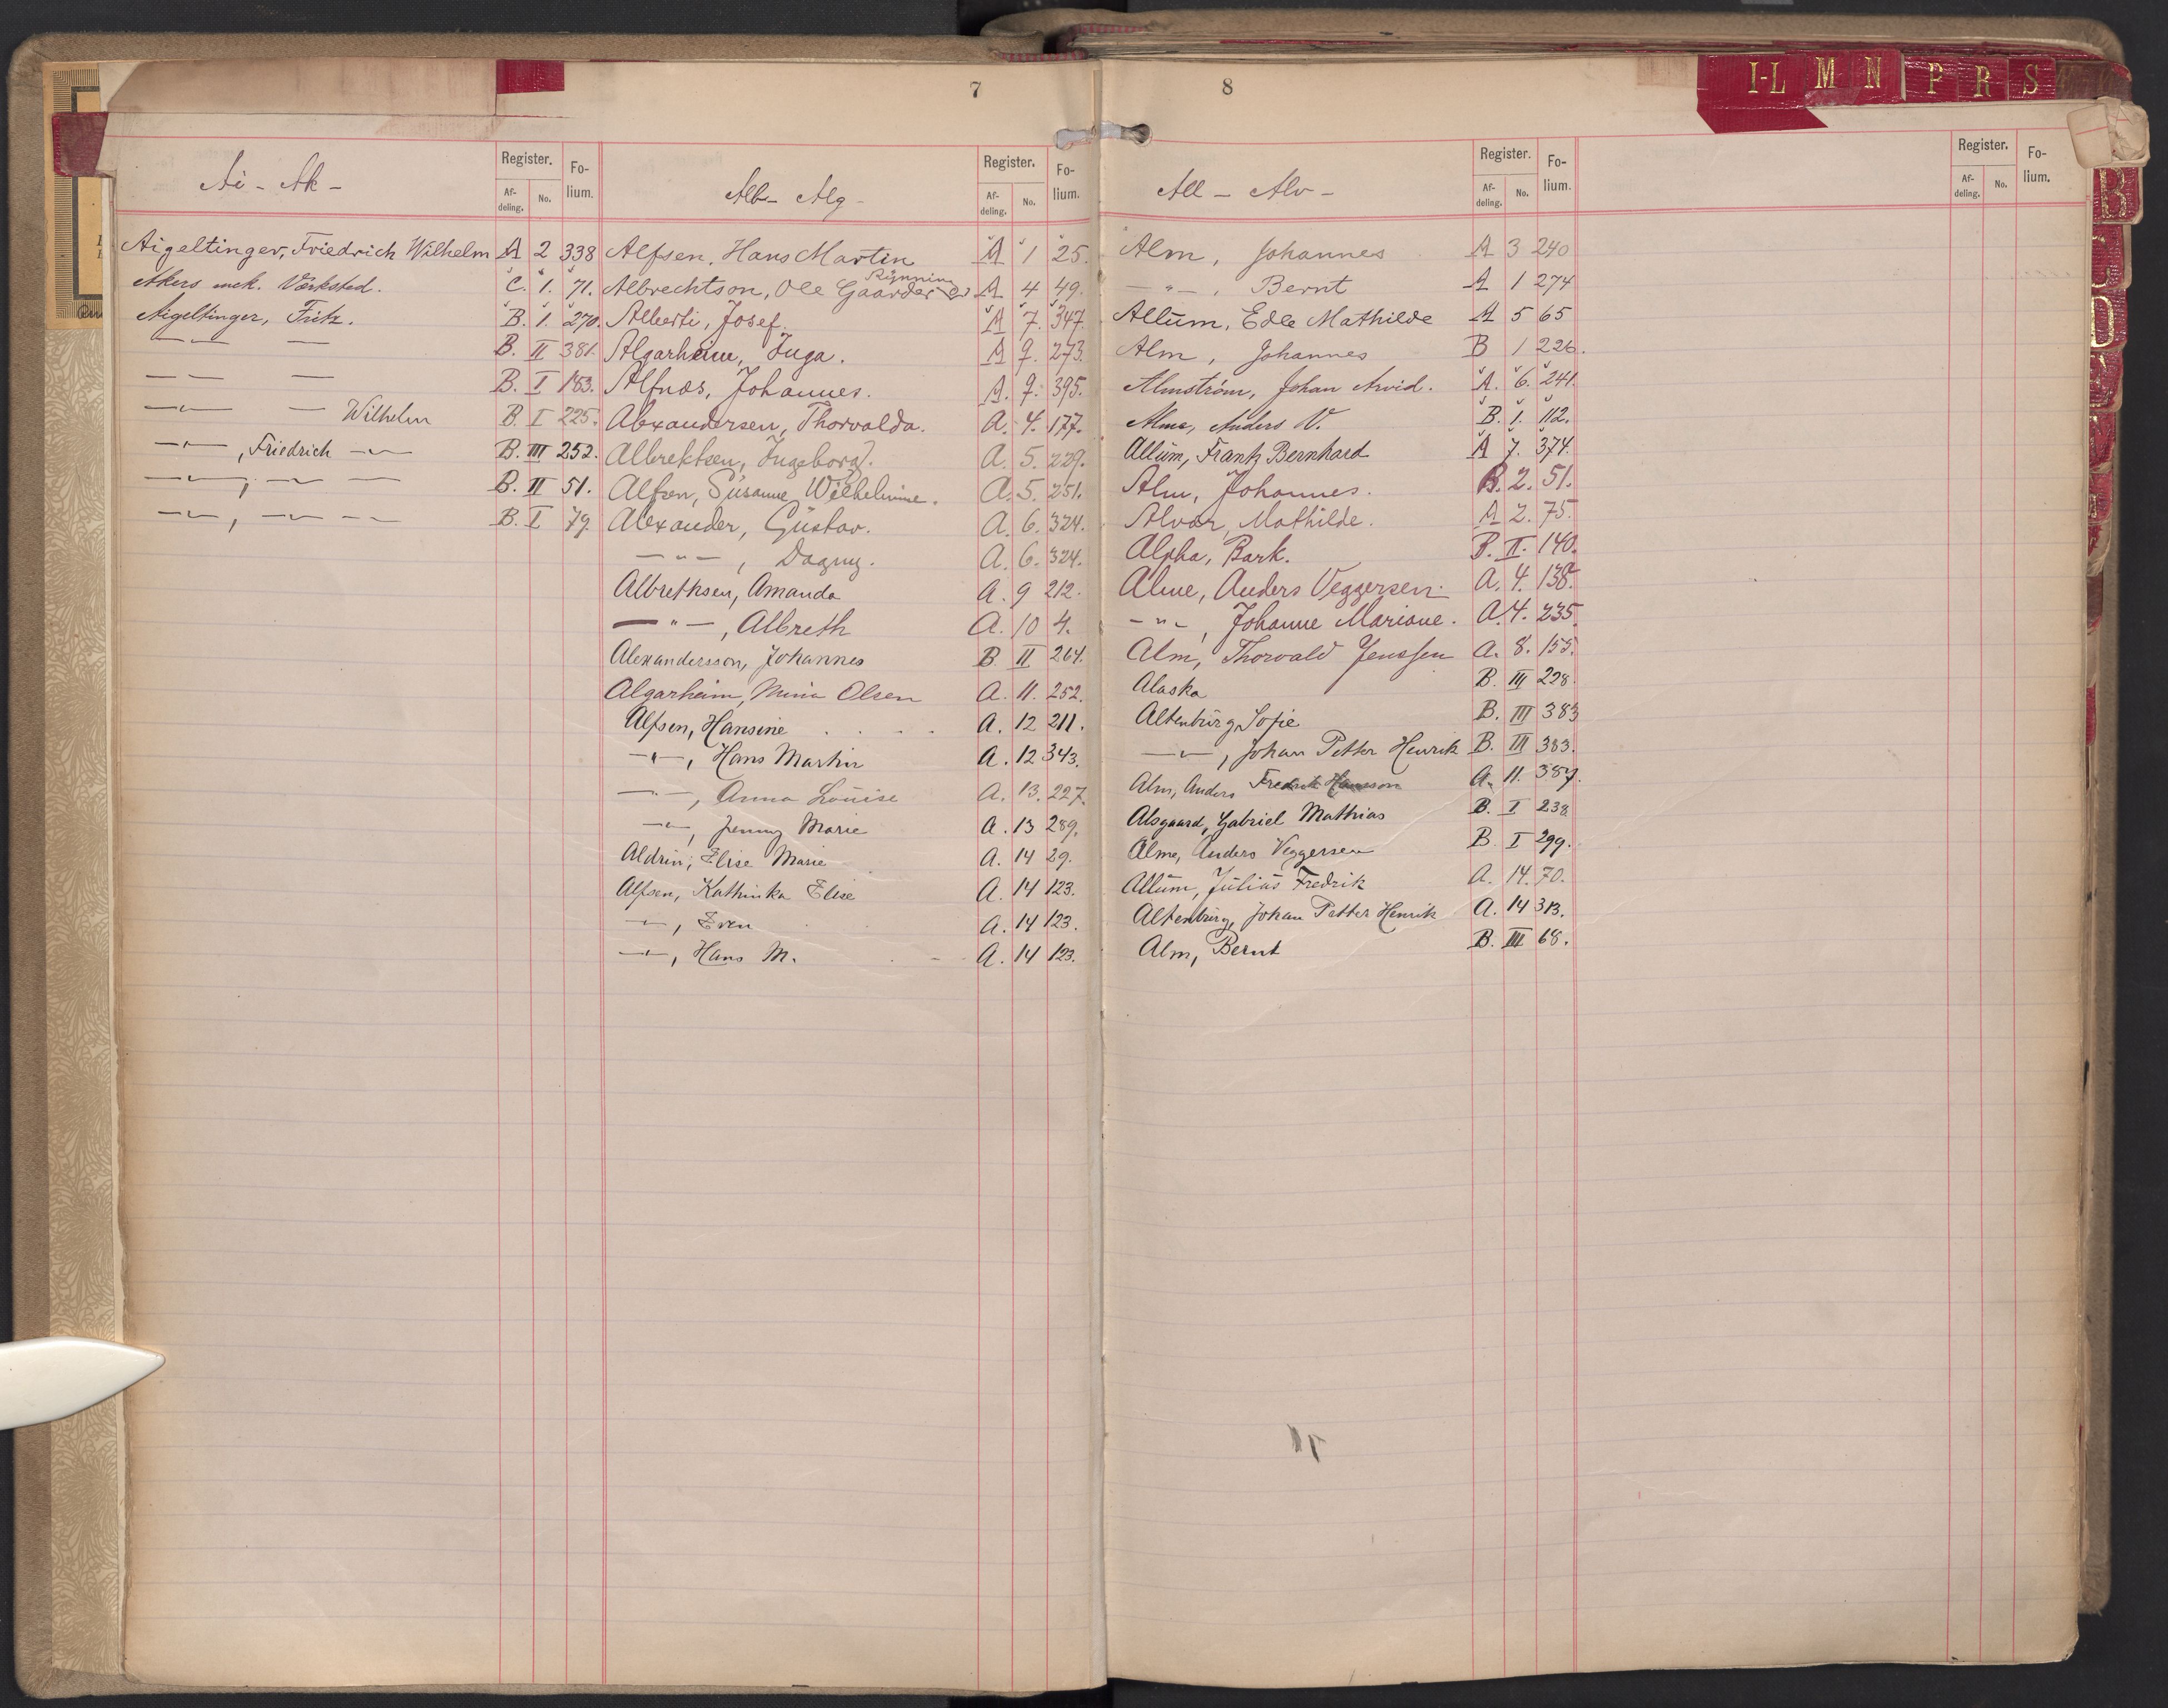 7
Ai - Ak -
Register.
Af-deling.
No.
Fo-lium.
Aigeltinger, Friedrich Wilhelm A 2 338
Akers mek. Værksted. C. 1. 71.
Aigeltinger, Fritz. B. 1. 270.
— — — B. II 381.
— — — B. I 183.
—"— — Wilhelm B. I 225.
—"—, Friedrich —"— B. III 252.
—"—, —"— — B. II 51.
—"—, —"— — B. I 79
Alb - Alg -
Register.
Af-deling.
No.
Fo-lium.
Alfsen, Hans Martin A 1 25.
Rynning
Albrechtson, Ole Gaarder A 4 49.
Alberti, Josef. A 7. 347.
Algarheim, Inga. A 9. 273.
Alfnæs, Johannes. A. 9. 395.
Alexandersen, Thorvalda. A. 4. 177.
Albrektsen, Ingeborg. A. 5. 229.
Alfsen, Susanne Wilhelmine. A. 5. 251.
Alexander, Gustav. A. 6. 324.
—"—, Dagny. A. 6. 324.
Albrethsen, Amanda A. 9 212.
—"—, Albreth A. 10 4.
Alexandersson, Johannes B. II 264.
Algarheim, Mina Olsen A. 11. 252.
Alfsen, Hansine . . . . A. 12 211.
—"—, Hans Martin A. 12 343.
—"—, Anna Louise A. 13. 227.
—"—, Jenny Marie A. 13 289.
Aldrin, Elise Marie A. 14 29.
Alfsen, Kathinka Elise A. 14 123.
—"—, Even A. 14 123.
—"—, Hans M. A. 14 123.
8
All - Alv -
Register.
Af-deling.
No.
Fo-lium.
Alm, Johannes A 3 240
—"—, Bernt A 1 274
Allum, Edle Mathilde A 5 65
Alm, Johannes B 1 226.
Almström, Johan Arvid. A. 6. 241.
Alme, Anders V. B. 1. 112.
Allum, Frantz Bernhard A 7. 374.
Alm, Johannes. B. 2. 51.
Alvar, Mathilde. A 2. 75.
Alpha, Bark. B. II. 140.
Alme, Anders Veggersen. A. 4. 138.
—"—, Johanne Mariane. A. 4. 235.
Alm, Thorvald Jenssen A. 8. 155.
Alaska B. III 228.
Altenburg, Sofie B. III 383
—"—, Johan Petter Henrik B. III 383.
Alm, Anders Fredrik Hansson A. 11. 387.
Alsgaard, Gabriel Mathias B. I 238
Alme, Anders Veggersen B. I 299.
Allum, Julius Fredrik A. 14. 70.
Altenburg, Johan Petter Henrik A. 14 313.
Alm, Bernt B. III 68.
Register.
Af-deling.
No.
Fo-lium.
I-L M N P R S
B
C
D